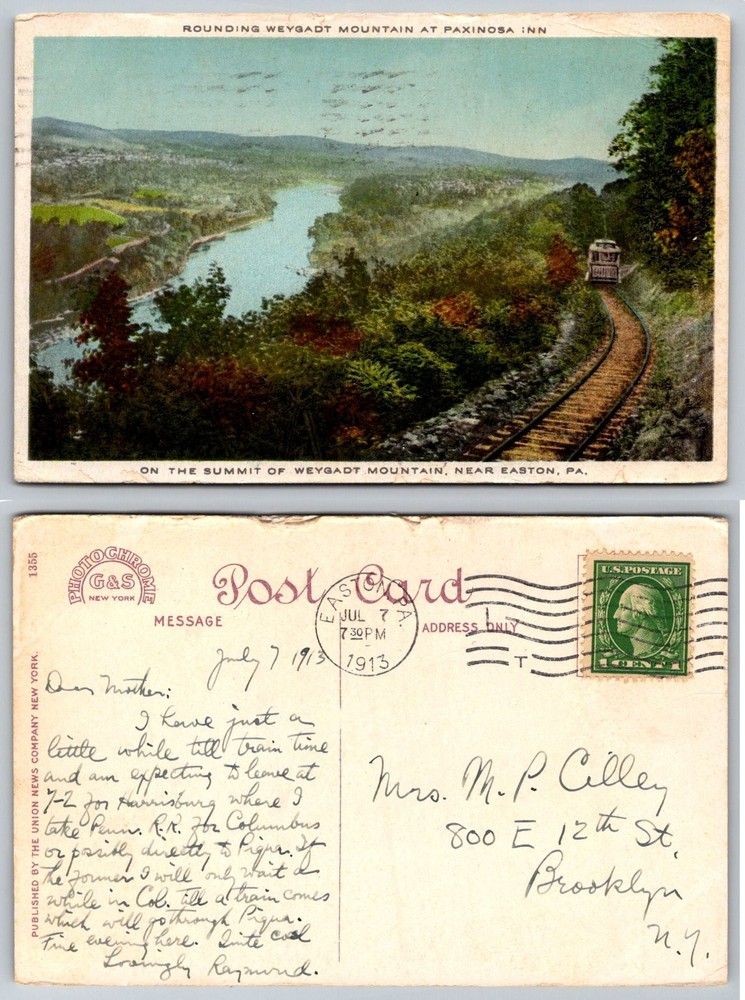 ROUNDING WEYGADT MOUNTAIN AT PAXINOSA INN
ON THE SUMMIT OF WEYGADT MOUNTAIN, NEAR EASTON, PA.
1355
PHOTOCHROME
G&S
NEW YORK
Post Card
MESSAGE
ADDRESS ONLY
EASTON, PA.
JUL 7
7 30 PM
1913
T
U.S. POSTAGE
1 CENT 1
PUBLISHED BY THE UNION NEWS COMPANY NEW YORK.
July 7 1913
Dear Mother:
I have just a
little while till train time
and am expecting to leave at
7-2 for Harrisburg where I
take Penn. R.R. for Columbus
or possibly directly to Piqua. If
the former I will only wait a
while in Col. till a train comes
which will go through Piqua.
Fine evening here. Quite cool
Lovingly Raymond.
Mrs. M. P. Cilley
800 E 12th St.
Brooklyn
N.Y.